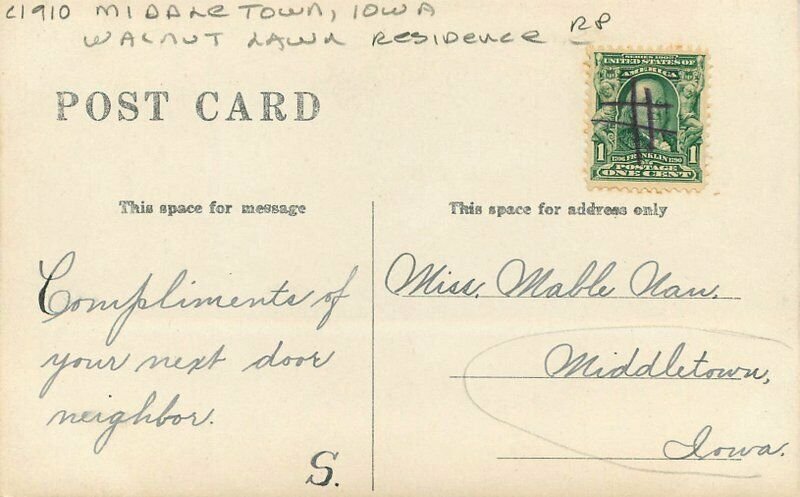 c1910 MIDDLETOWN, IOWA
WALNUT LAWN RESIDENCE RP
POST CARD
SERIES 1902
UNITED STATES OF
AMERICA
1 1706 FRANKLIN 1790 1
POSTAGE
ONE CENT
This space for message
This space for address only
Compliments of
your next door
neighbor.
S.
Miss. Mable Nau.
Middletown,
Iowa.